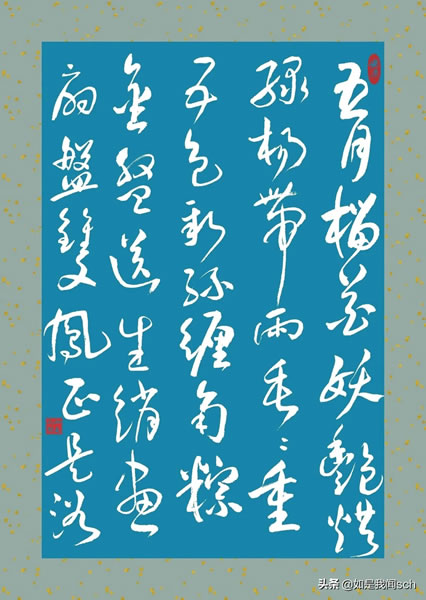 五月榴花妖艷烘
綠楊帶雨垂々重
五色新絲纏角粽
金盤送生綃畫
扇盤雙鳳正是浴
头条 @如是我闻sch